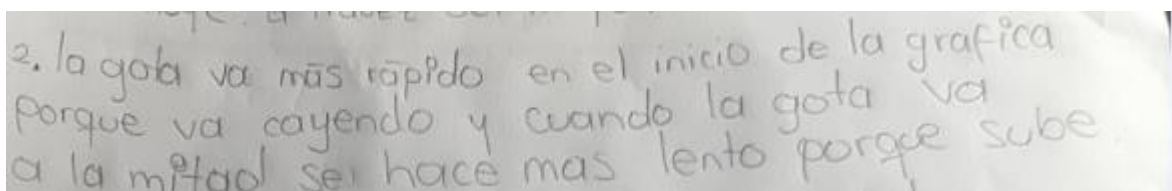 2. la gota va más rápido en el inicio de la grafica
porque va cayendo y cuando la gota va
a la mitad se hace mas lento porqce sube